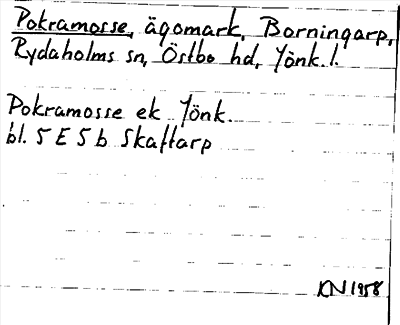 Pokramosse, ägomark, Borningarp,
Rydaholms sn, Östbo hd, Jönk. l.
Pokramosse ek Jönk.
bl. 5 E 5 b Skaftarp
KN 1958